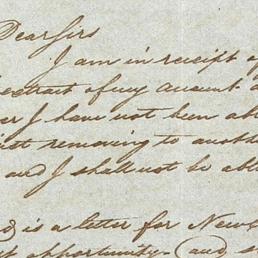 Dear Sirs
I am in receipt of
extract of my account
I have not been
removing to another
and I shall not be able
is a letter for
opportunity - and